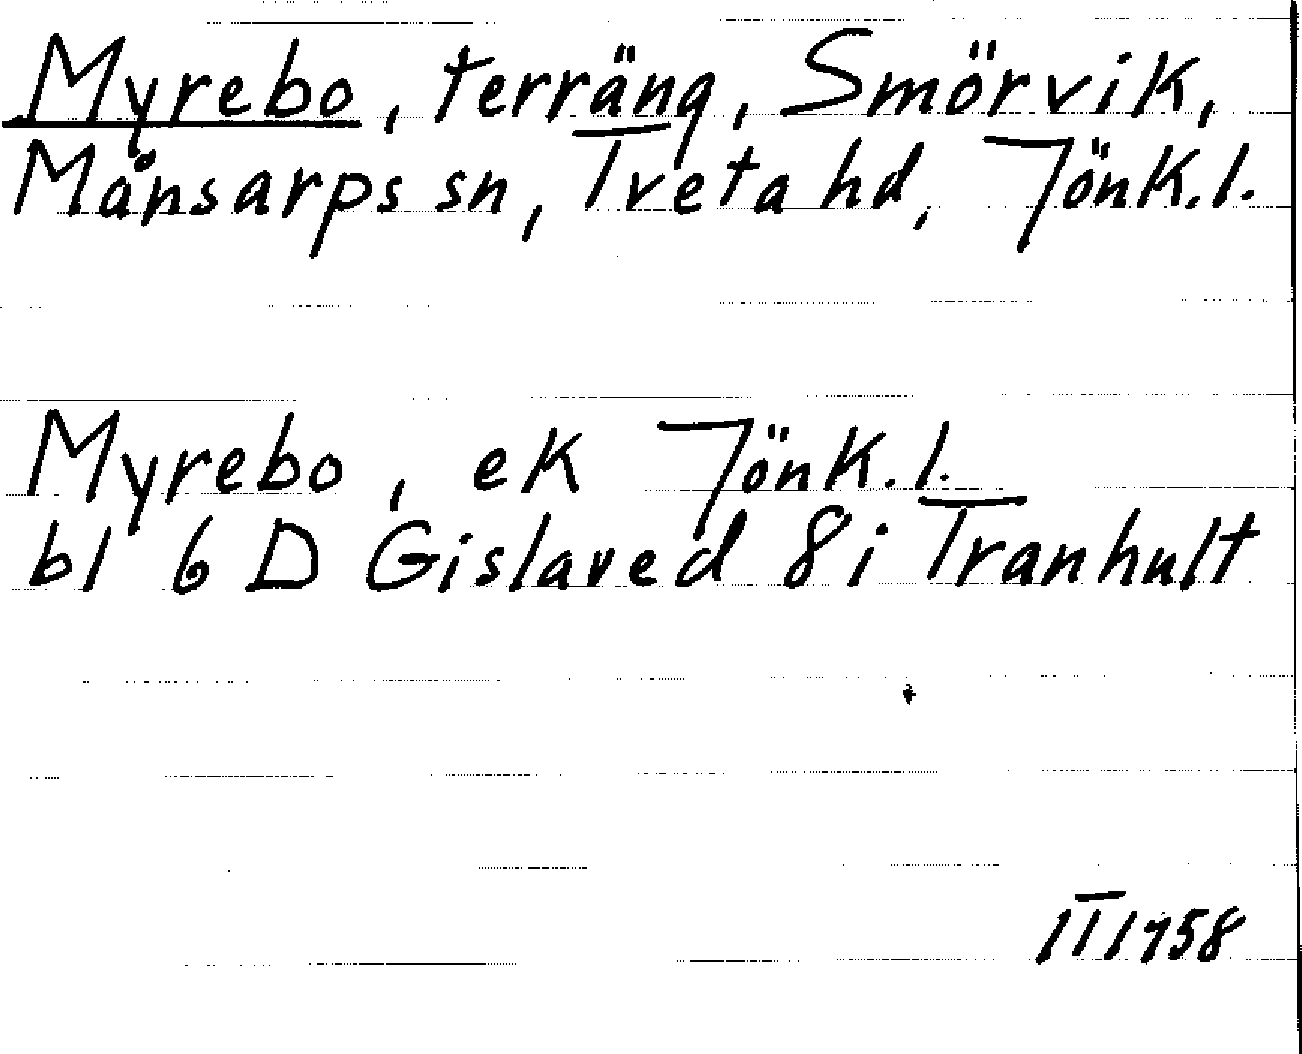 Myrebo, terräng, Smörvik,
Månsarps sn, Tveta hd, Jönk.l.
Myrebo, ek Jönk.l.
bl 6 D Gislaved 8i Tranhult
ITI 1958